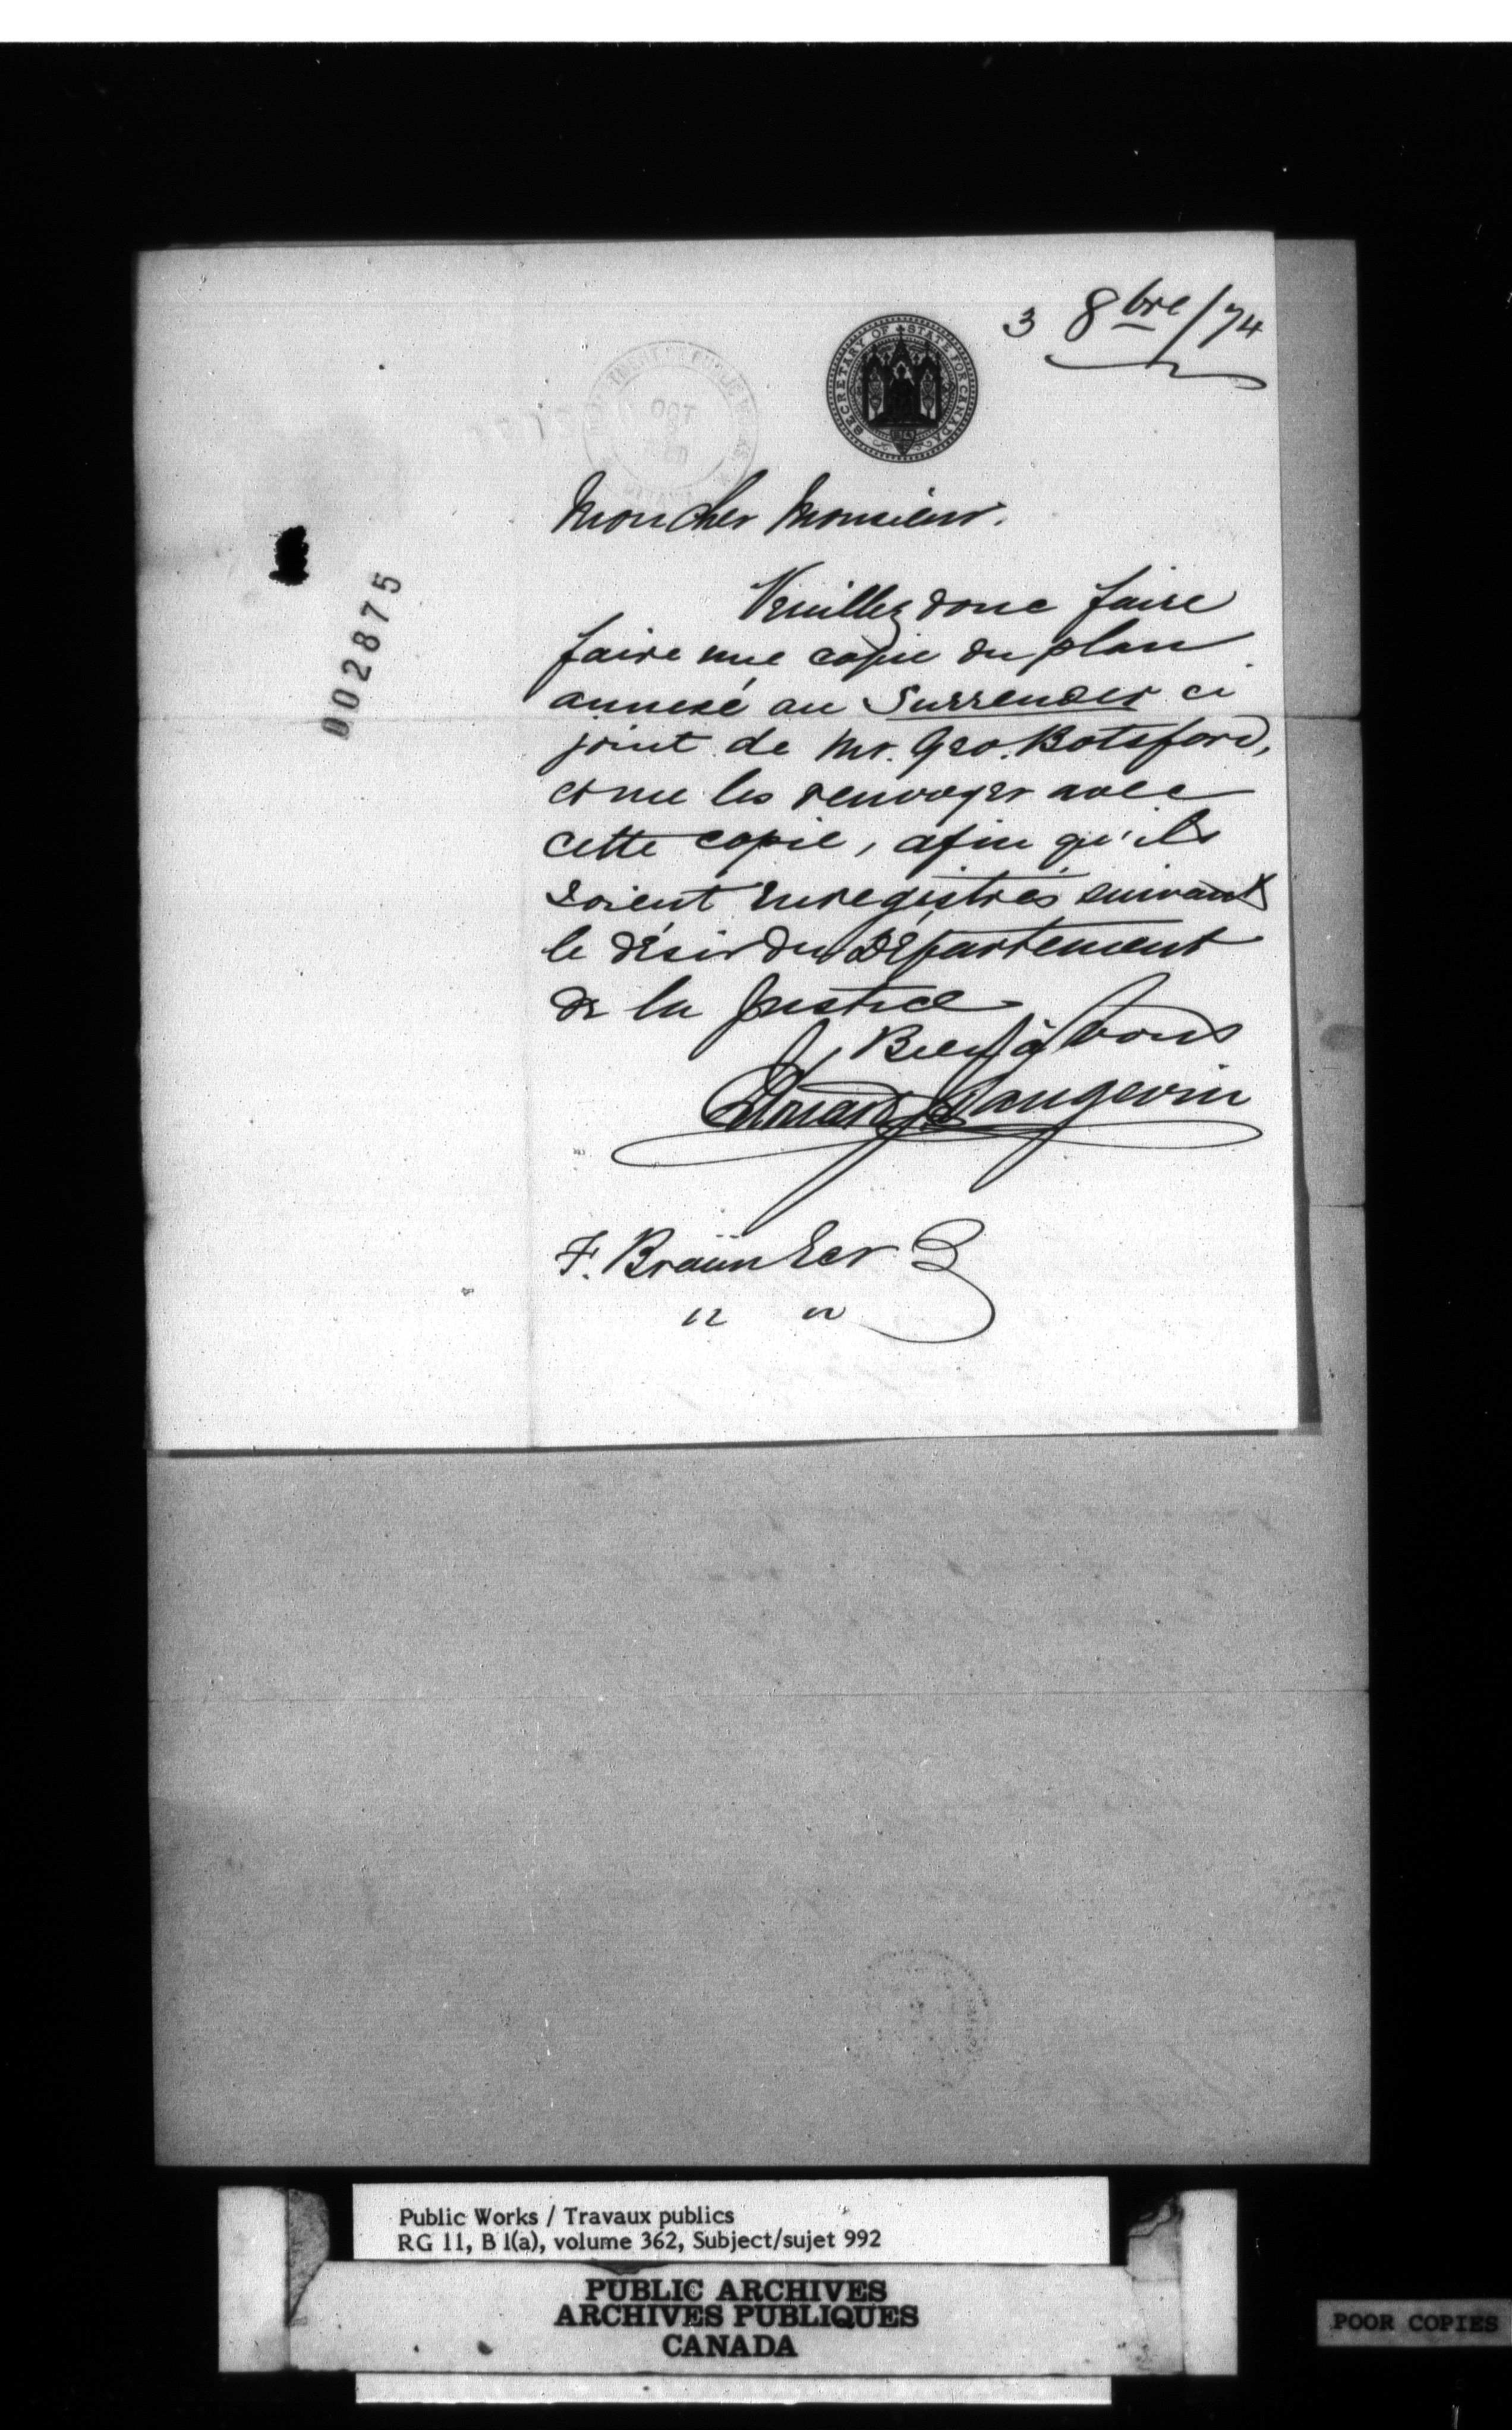 3 8bre/74
SECRETARY OF STATE FOR CANADA
OCT
Mon cher Monsieur.
Veuillez donc faire
faire une copie du plan
annexé au Surrender ci
joint de Mr. Geo. Botsford,
et me les renvoyer avec
cette copie, afin qu'ils
soient enregistrés suivant
le désir du Département
de la Justice
Bien à vous
Edouard J. Langevin
F. Braün Ecr
002875
Public Works / Travaux publics
RG 11, B 1(a), volume 362, Subject/sujet 992
PUBLIC ARCHIVES
ARCHIVES PUBLIQUES
CANADA
POOR COPIES